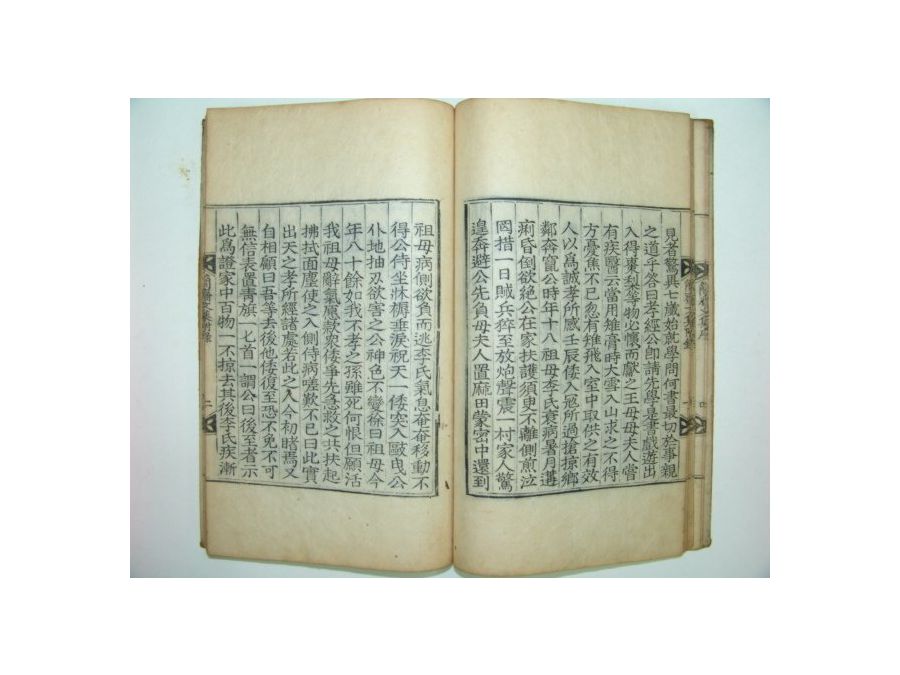 見者驚異七歲始就學問何書最切於事親
之道乎答曰孝經公卽請先學是書嘗戲遊出
入得棗梨等物必懷而獻之王母母夫人嘗
有疾醫云當用雉膏時大雪入山求之不得
方憂焦不已忽有雉飛入室中取供之有效
人以爲誠孝所感壬辰倭入寇所過搶掠鄉
鄰奔竄公時年十八祖母李氏衰病暑月遘
痢昏倒欲絶公在家扶護須臾不離側煎泣
罔措一日賊兵猝至放炮聲震一村家人驚
遑奔避公先負母夫人置麻田蒙密中還到
祖母病側欲負而逃李氏氣息奄奄移動不
得公侍坐牀褥垂淚祝天一倭突入敺曳公
仆地抽刃欲害之公神色不變徐曰祖母今
年八十餘如我不孝之孫雖死何恨但願活
我祖母辭氣慮款衆倭爭先急救之共扶起
拂拭面塵使之入侍病嗟歎不已曰此實
出天之孝所經諸處若此之人今初睹焉又
自相顧曰吾等去後他倭復至恐不免不可
無信表置靑旗一匕首一謂公曰後至者示
此爲證家中百物一不掠去其後李氏疾漸